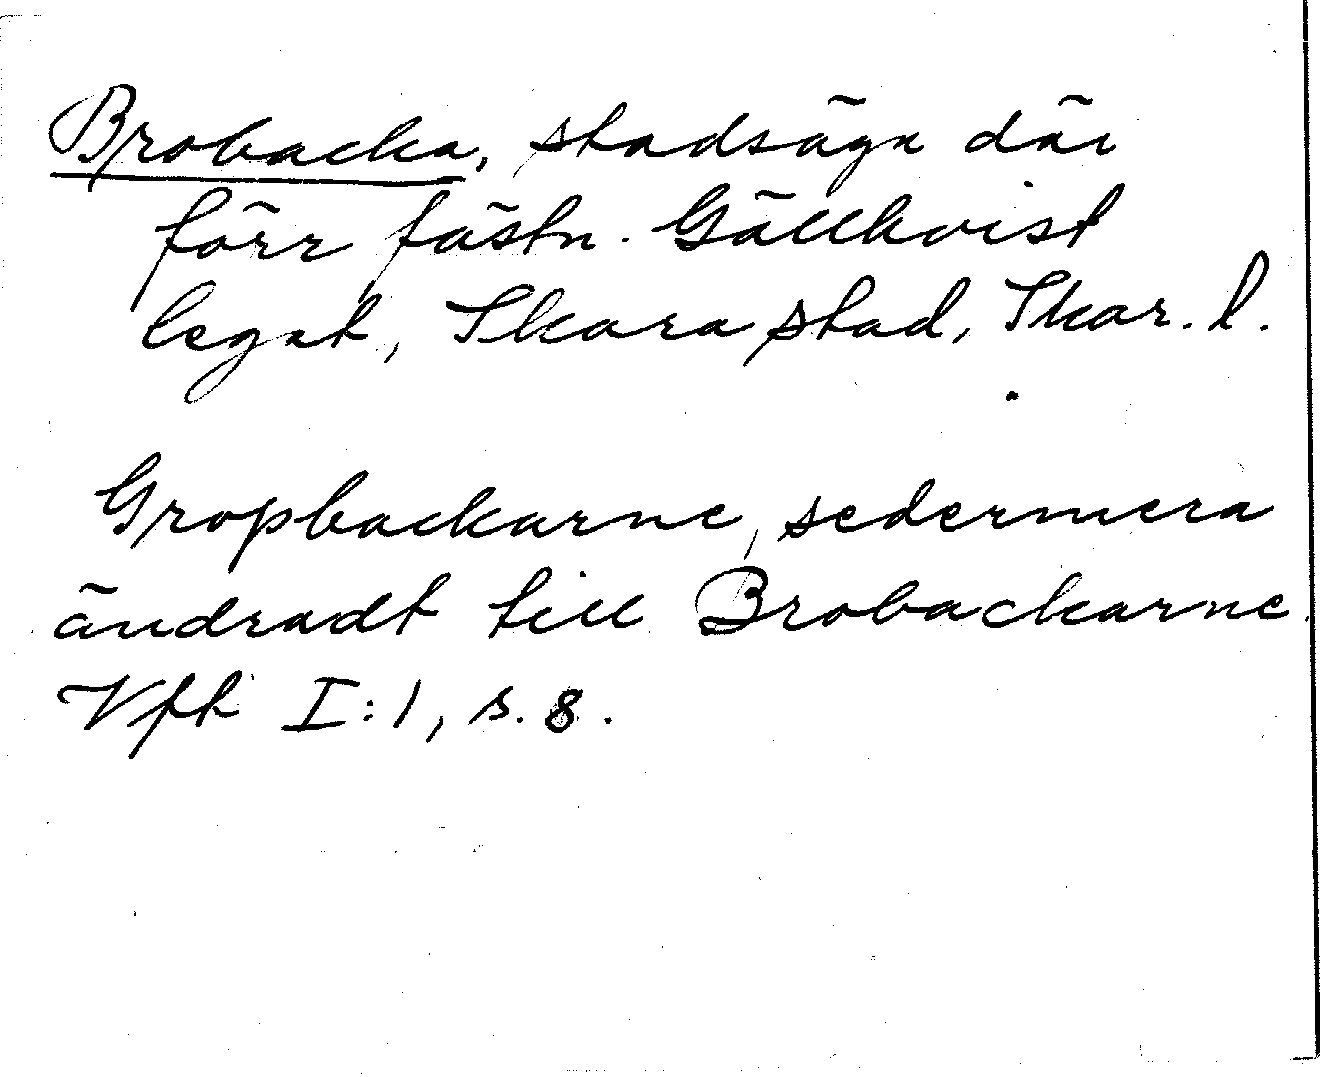 Brobacka, stadsäga där
förr fästn. Gällkvist
legat, Skara stad, Skar. l.
Gropbackarne, sedermera
ändradt till Brobackarne.
Vfk I:1, s. 8.